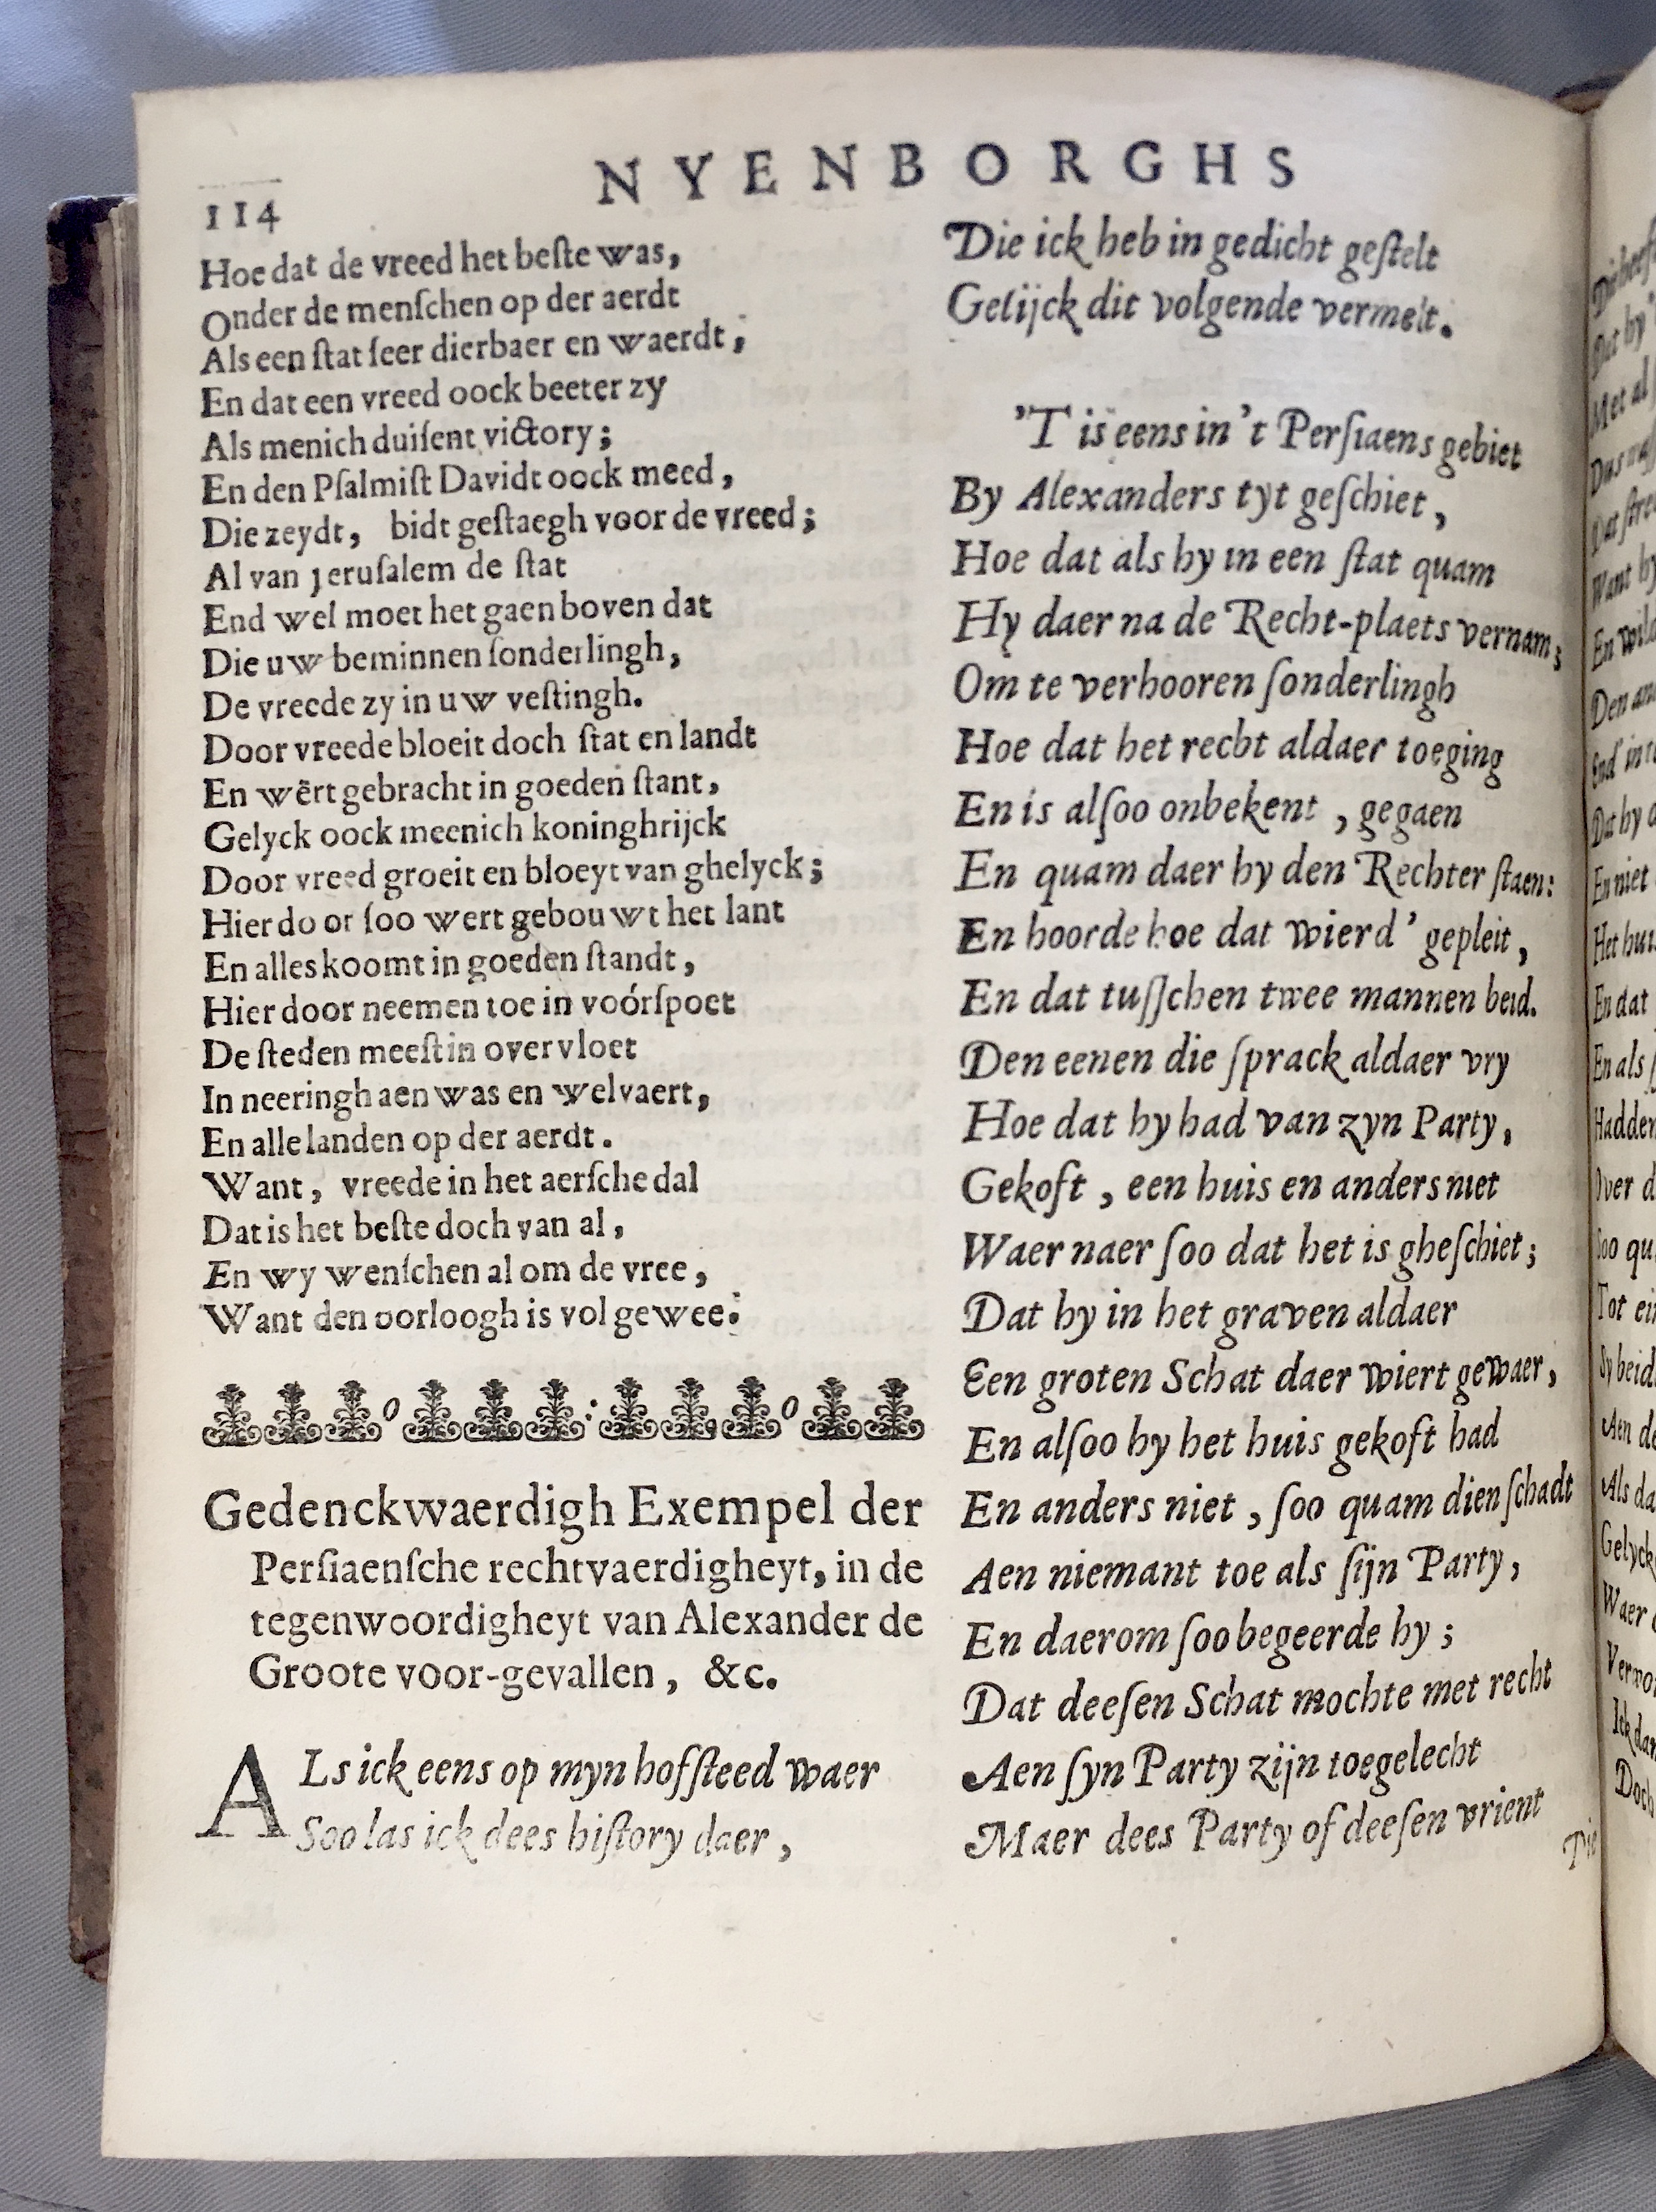 114
NYENBORGHS
Hoe dat de vreed het beſte was,
Onder de menſchen op der aerdt
Als een ſtat ſeer dierbaer en waerdt;
En dat een vreed oock beeter zy
Als menich duiſent victory;
En den Pſalmiſt Davidt oock meed,
Die zeydt, bidt geſtaegh voor de vreed;
Al van Jeruſalem de ſtat
End wel moet het gaen boven dat
Die uw beminnen ſonderlingh,
De vreede zy in uw veſtingh.
Door vreede bloeit doch ſtat en landt
En wērt gebracht in goeden ſtant,
Gelyck oock meenich koninghrijck
Door vreed groeit en bloeyt van ghelyck;
Hier door ſoo wert gebouwt het lant
En alles koomt in goeden ſtandt,
Hier door neemen toe in vóórſpoet
De ſteden meeſt in overvloet
In neeringh aenwas en welvaert,
En alle landen op der aerdt.
Want, vreede in het aerſche dal
Dat is het beſte doch van al,
En wy wenſchen al om de vree,
Want den oorloogh is vol gewee.
Gedenckwaerdigh Exempel der
Perſiaenſche rechtvaerdigheyt, in de
tegenwoordigheyt van Alexander de
Groote voor-gevallen, &c.
ALs ick eens op myn hofſteed waer
Soo las ick dees hiſtory daer,
Die ick heb in gedicht geſtelt
Gelijck dit volgende vermelt.
'T is eens in 't Perſiaens gebiet
By Alexanders tyt geſchiet,
Hoe dat als hy in een ſtat quam
Hy daer na de Recht-plaets vernam;
Om te verhooren ſonderlingh
Hoe dat het recht aldaer toeging
En is alſoo onbekent, gegaen
En quam daer by den Rechter ſtaen:
En hoorde hoe dat wierd' gepleit,
En dat tuſſchen twee mannen beid.
Den eenen die ſprack aldaer vry
Hoe dat hy had van zyn Party,
Gekoft, een huis en anders niet
Waer naer ſoo dat het is gheſchiet;
Dat hy in het graven aldaer
Een groten Schat daer wiert gewaer,
En alſoo hy het huis gekoft had
En anders niet, ſoo quam dien ſchadt
Aen niemant toe als ſijn Party,
En daerom ſoo begeerde hy;
Dat deeſen Schat mochte met recht
Aen ſyn Party zijn toegelecht
Maer dees Party of deeſen vrient
Die